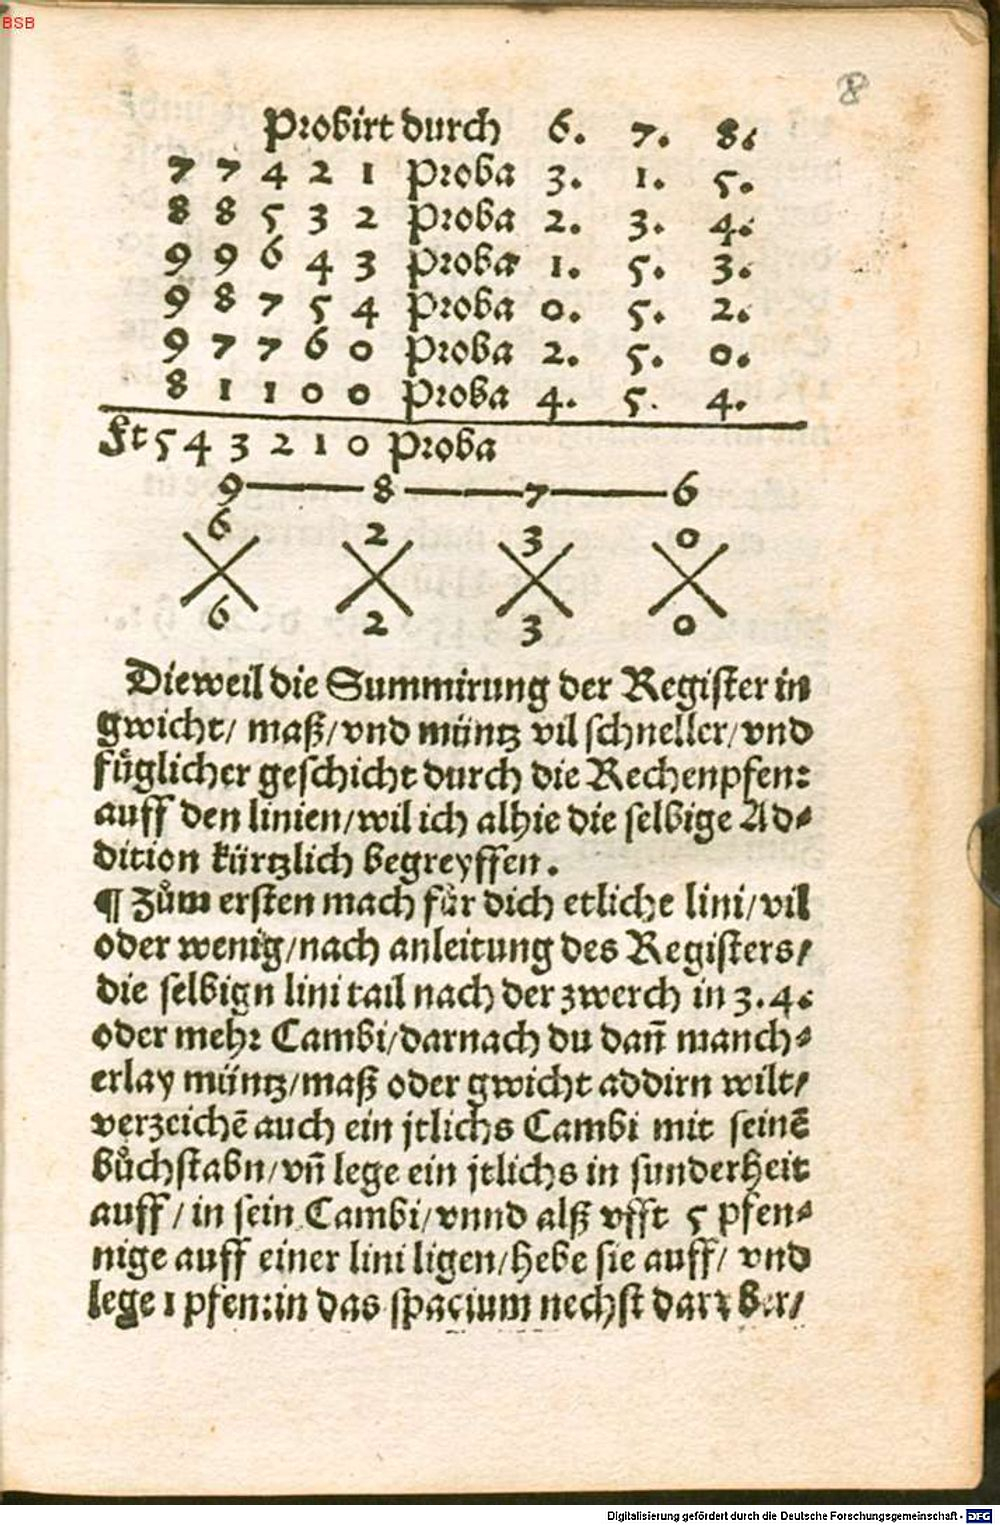 BSB
8
Probirt durch 6. 7. 8.
7 7 4 2 1 Proba 3. 1. 5.
8 8 5 3 2 Proba 2. 3. 4.
9 9 6 4 3 Proba 1. 5. 3.
9 8 7 5 4 Proba 0. 5. 2.
9 7 7 6 0 Proba 2. 5. 0.
8 1 1 0 0 Proba 4. 5. 4.
Ft 5 4 3 2 1 0 Proba
9 8 7 6
6 2 3 0
6 2 3 0
Dieweil die Summirung der Register in
gwicht/ maß/ vnd müntz vil schneller/ vnd
fuͤglicher geschicht durch die Rechenpfen:
auff den linien/ wil ich alhie die selbige Ad⸗
dition kürtzlich begreyffen.
¶ Zům ersten mach für dich etliche lini/ vil
oder wenig/ nach anleitung des Registers/
die selbign lini tail nach der zwerch in 3. 4.
oder mehr Cambi/ darnach du dañ manch⸗
erlay müntz/ maß oder gwicht addirn wilt/
verzeichē auch ein jtlichs Cambi mit seinē
bůchstabn/ vñ lege ein jtlichs in sunderheit
auff/ in sein Cambi/ vnnd alß offt 5 pfen⸗
nige auff einer lini ligen/ hebe sie auff/ vnd
lege 1 pfen: in das spacium nechst darüber/
Digitalisierung gefördert durch die Deutsche Forschungsgemeinschaft - DFG